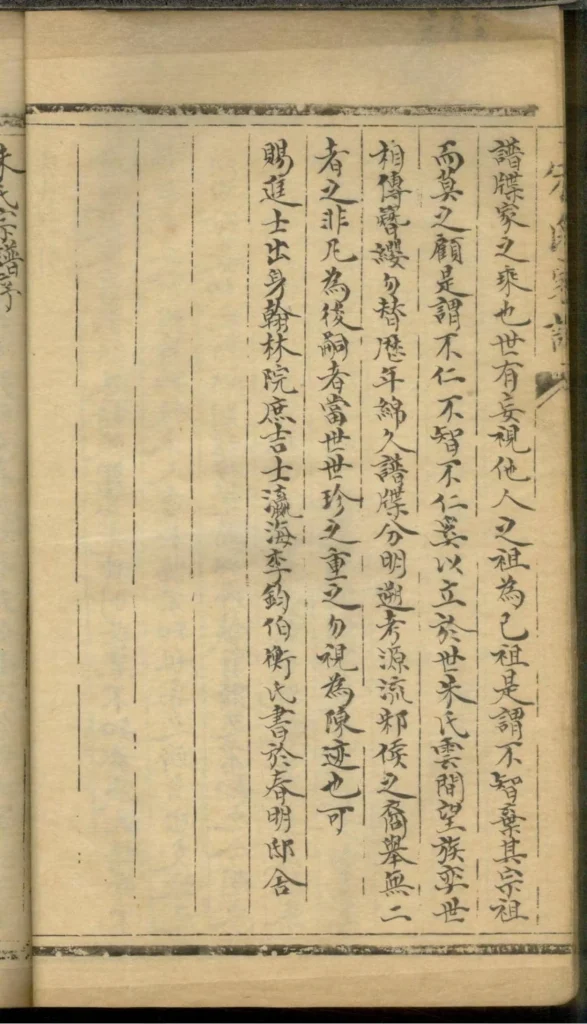 譜牒家之乘也世有妄視他人之祖為己祖是謂不智棄其宗祖
而莫之顧是謂不仁不智不仁奚以立於世朱氏雲間望族奕世
相傳簪纓勿替歷年綿久譜牒分明遡考源流邾侯之裔舉無二
者之非凡為後嗣者當世世珍之重之勿視為陳迹也可
賜進士出身翰林院庶吉士瀛海李鈞伯衡氏書於春明邸舍
朱氏宗譜序